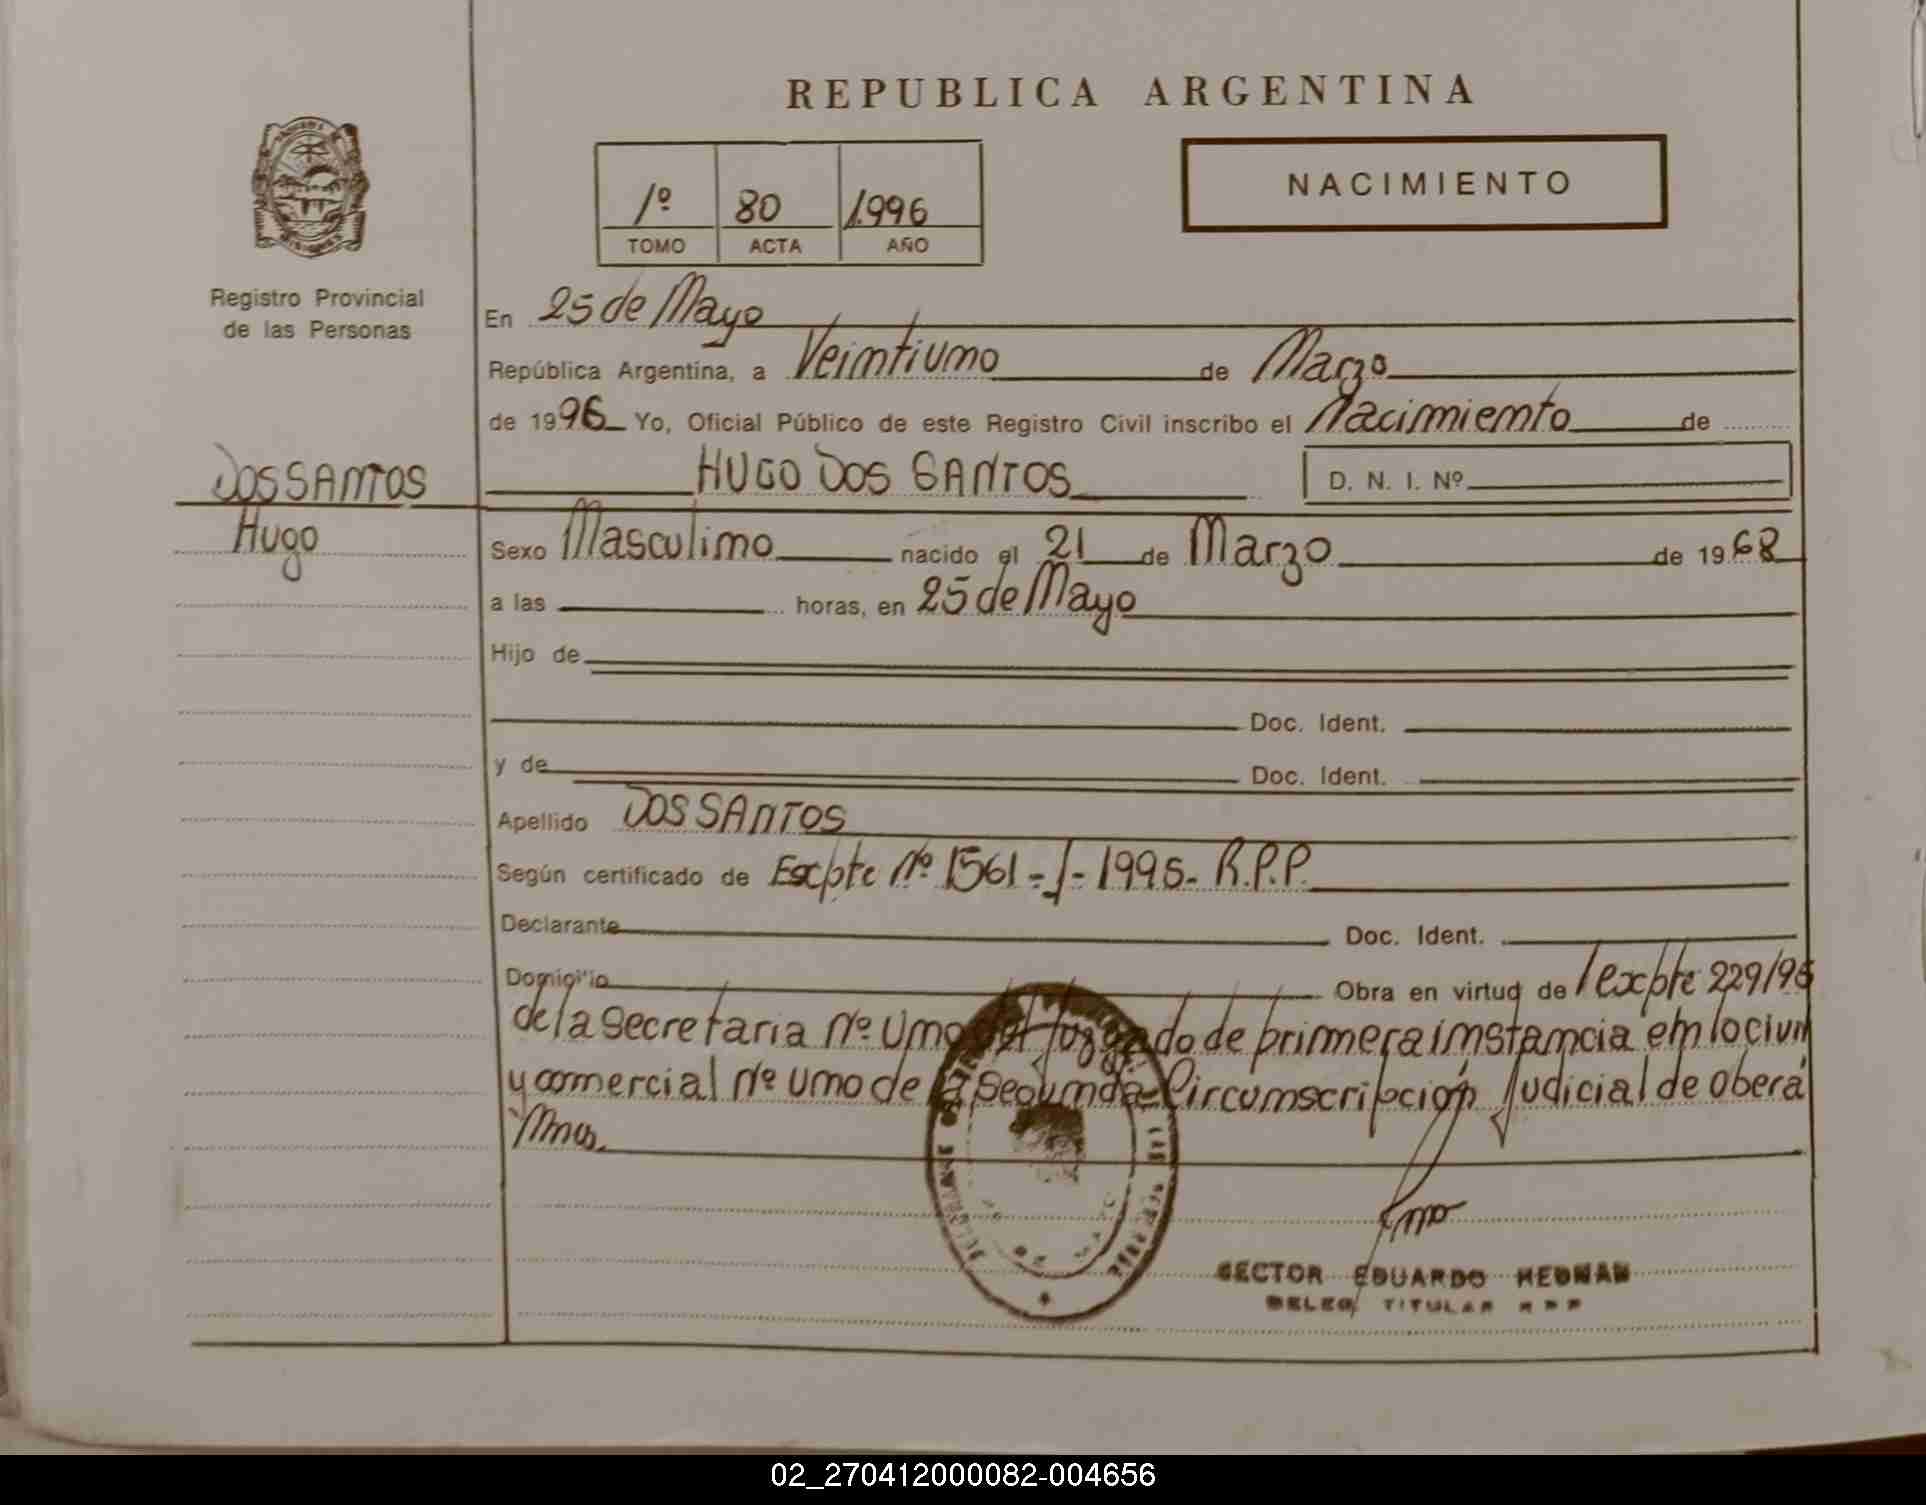 REPUBLICA ARGENTINA
NACIMIENTO
1º 80 1.996
TOMO ACTA AÑO
Registro Provincial
de las Personas
En 25 de Mayo
República Argentina, a Veintiuno de Marzo
de 1996 Yo, Oficial Público de este Registro Civil inscribo el Nacimiento de
DOS SANTOS
Hugo
HUGO DOS SANTOS D. N. I. Nº
Sexo Masculino nacido el 21 de Marzo de 1968
a las horas, en 25 de Mayo
Hijo de
Doc. Ident.
y de Doc. Ident.
Apellido DOS SANTOS
Según certificado de Excpte Nº 1561-J-1995- R.P.P.
Declarante Doc. Ident.
Domicilio Obra en virtud de excpte 229/95
de la Secretaria Nº Uno del Juzgado de primera instancia en lo civil
y comercial Nº uno de la Segunda Circunscripción Judicial de Oberá
Mnes.
HECTOR EDUARDO
DELEG. TITULAR R P P
02_270412000082-004656